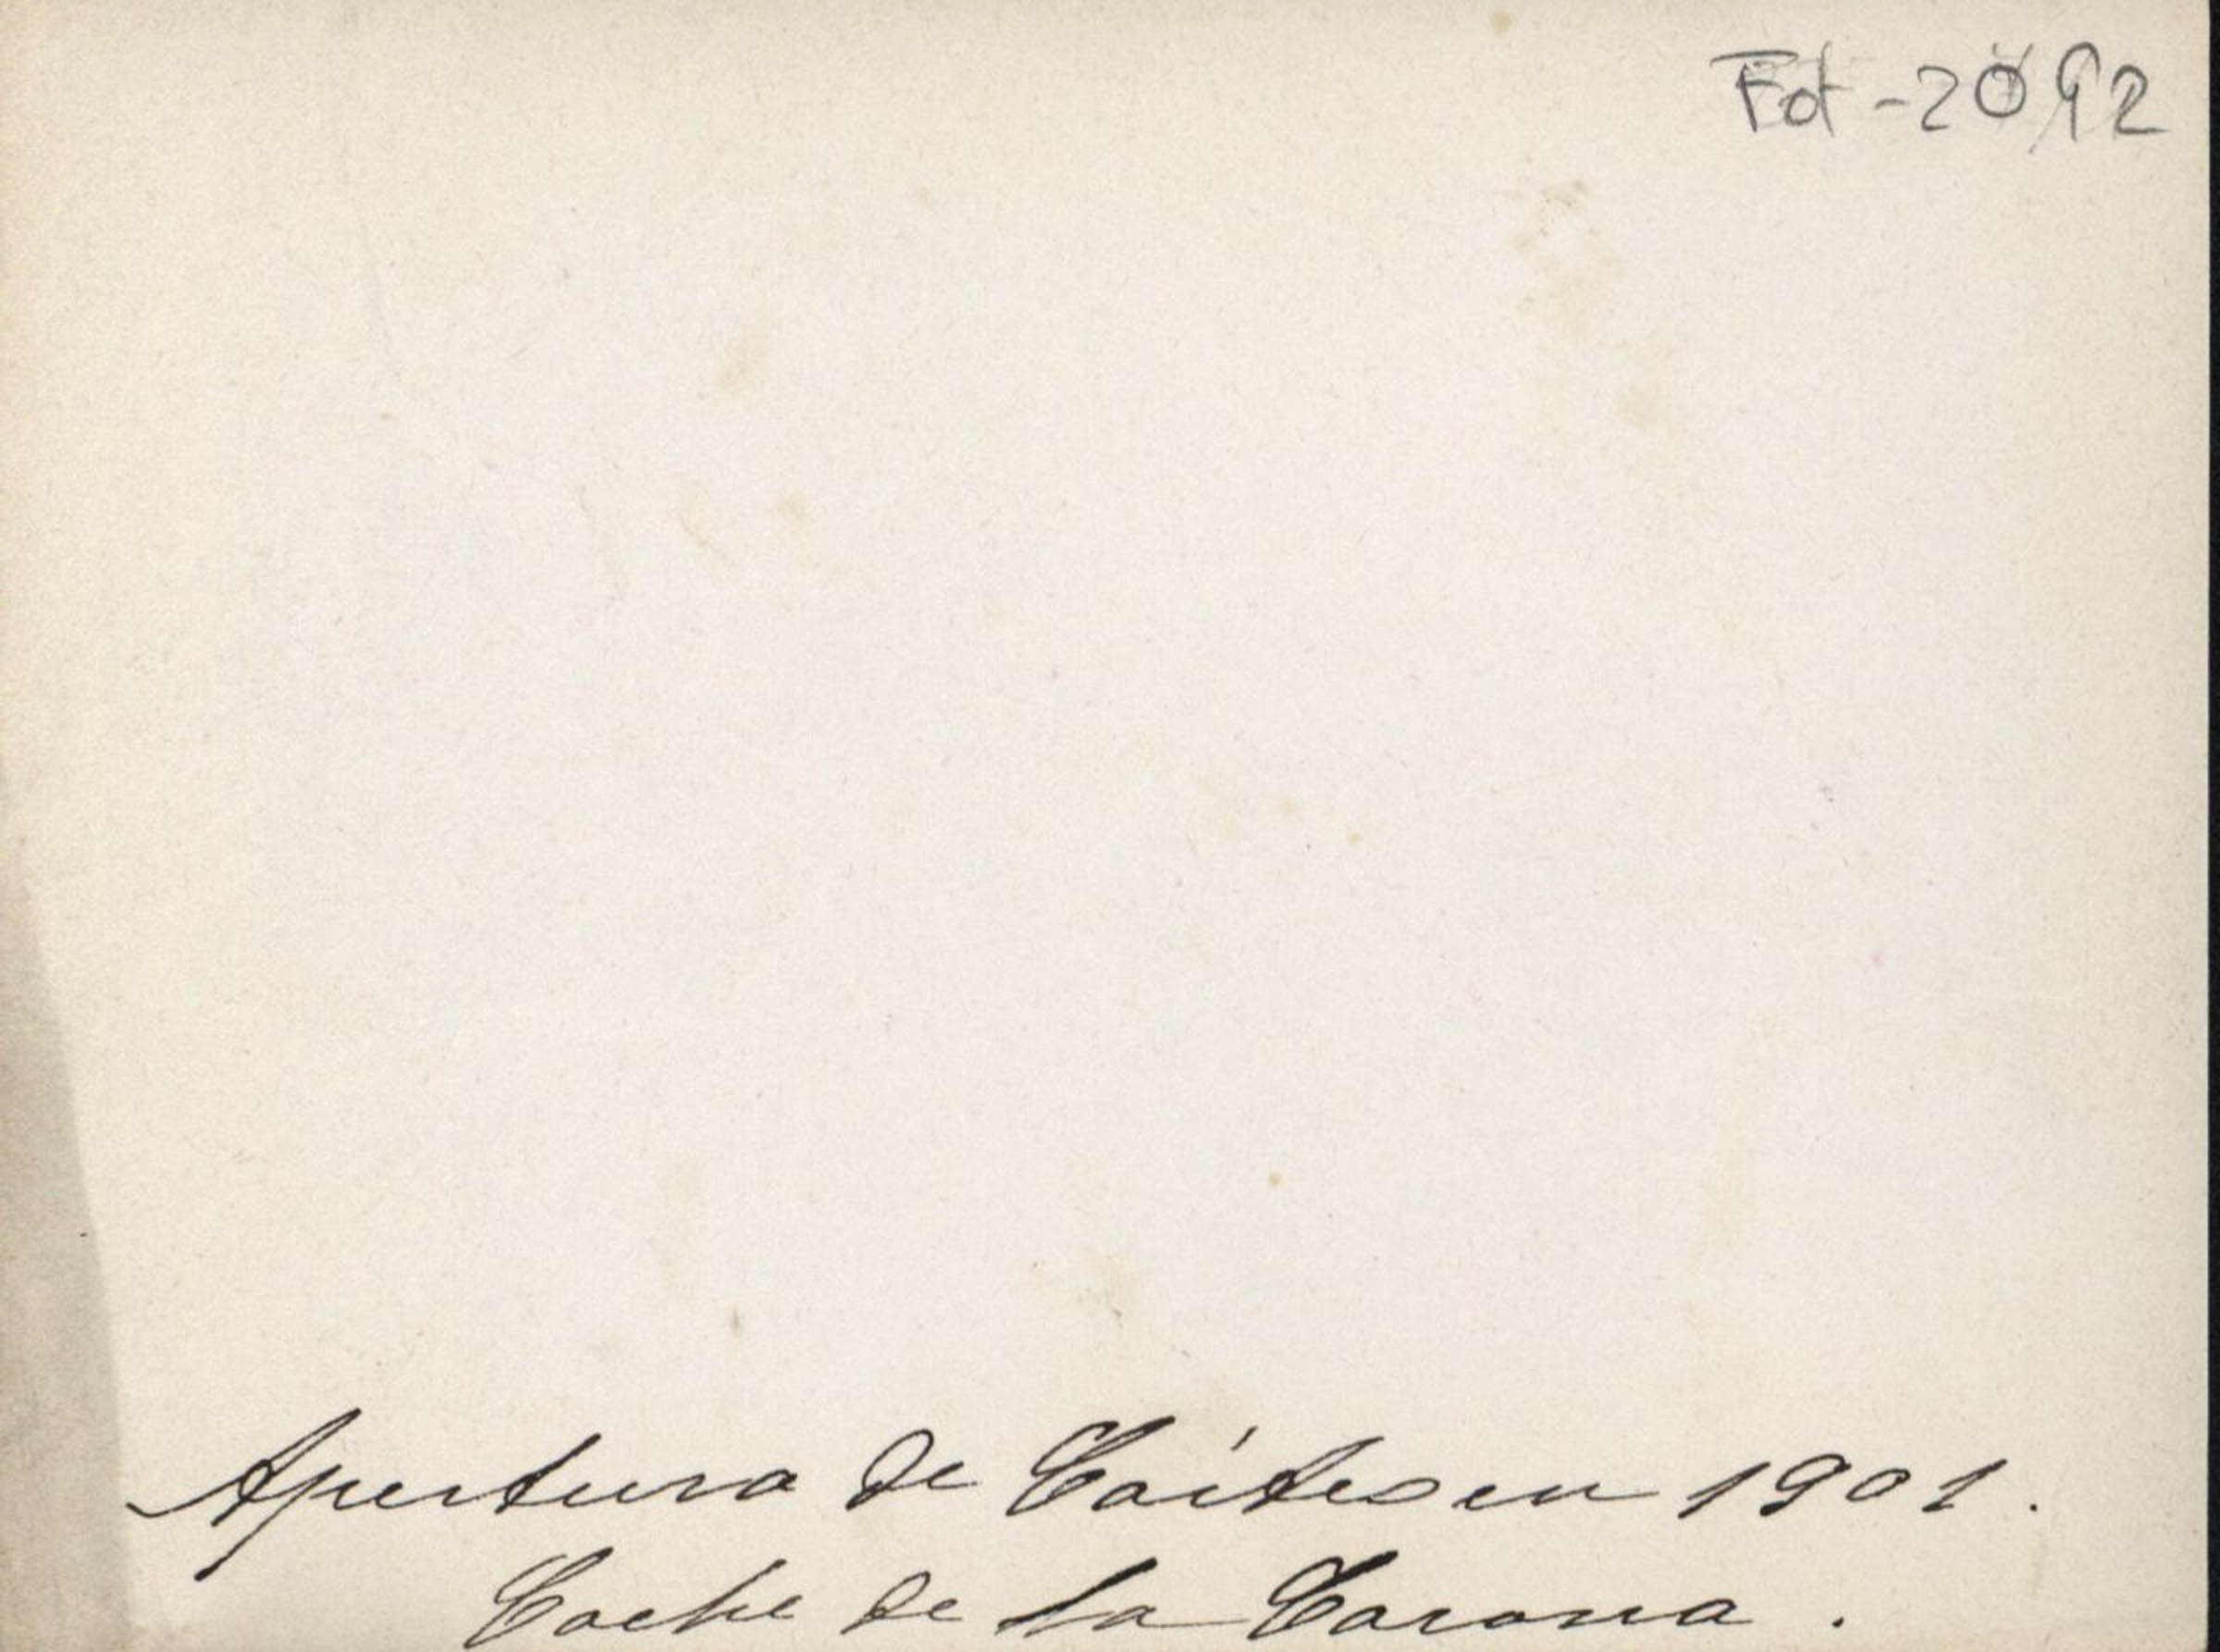 Fot-2092
Apertura de Córtes en 1901.
Coche de la Corona.